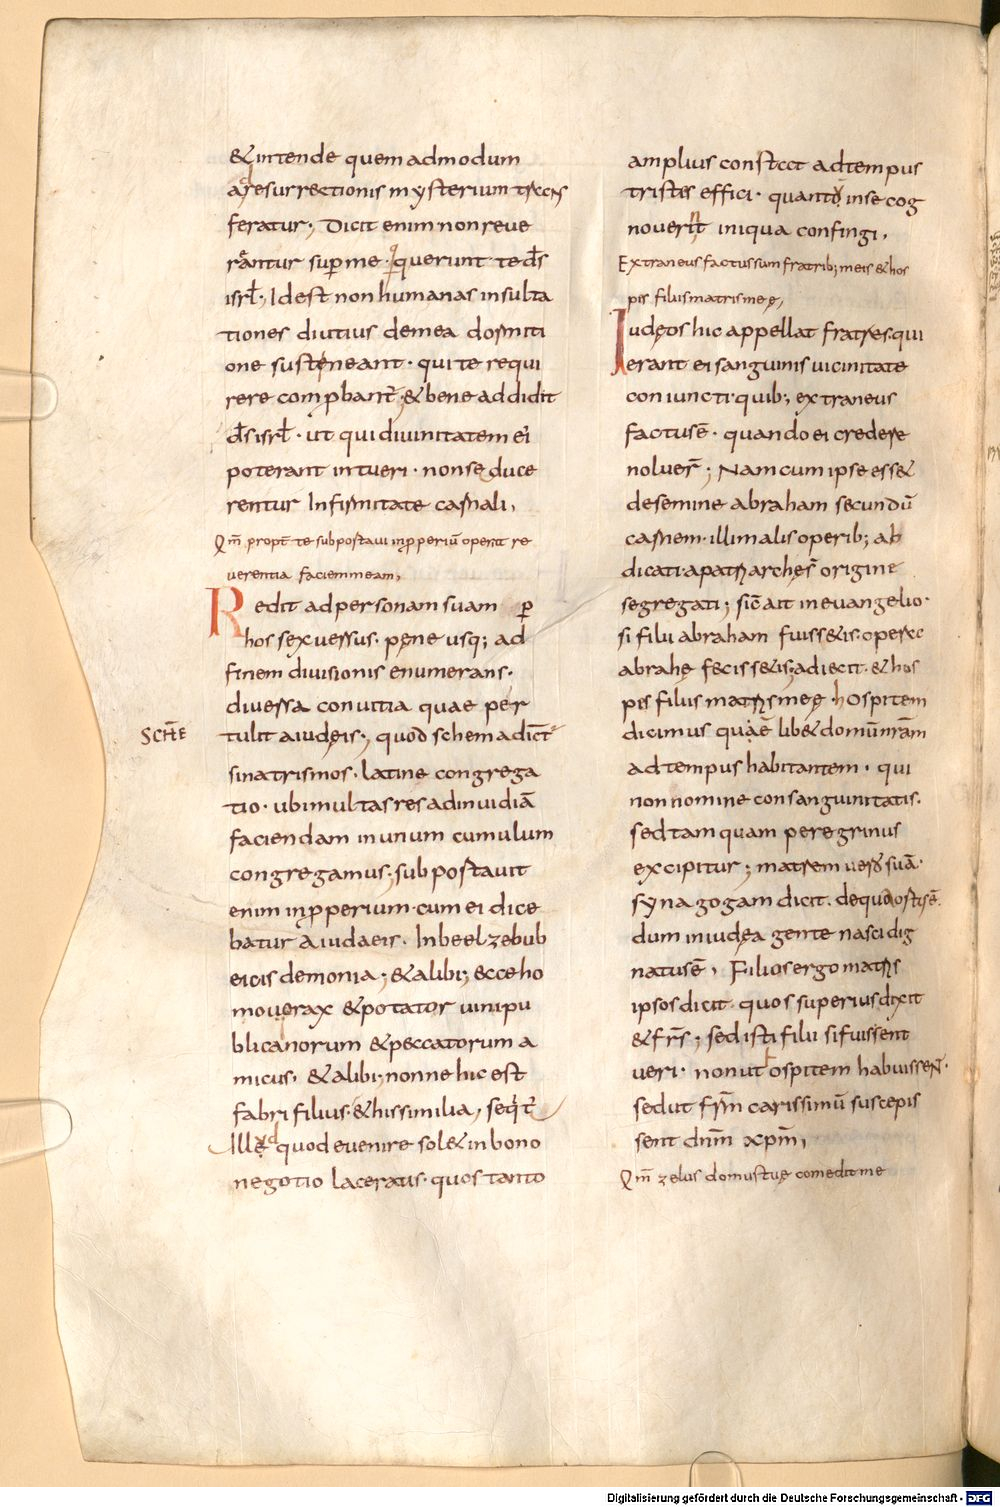 & intende quemadmodum
a resurrectionis mysterium trans
feratur; Dicit enim non reve
rantur sup me · querunt te d̄s
isrl̄; Idest non humanas insulta
tiones diutius demea dormiti
one susteneant · qui te requi
rere comp̱bant̄ ; & bene addidit
d̄s isrl̄ · ut qui divinitatem ei
poterant intueri · non seduce
rentur Infirmitate carnali,
Qm̄ propt̄ te subportavi inp̱perium operit re
verentia faciem meam,
Redit ad personam suam p̱
hos sex versus · pęne usq; ad
finem divisionis enumerans ·
diversa convitia quae per
SCHE
tulit a iudęis; quod schema dict̄
sinatrismos · latine congrega
tio · ubi multas res ad invidiā
faciendam in unum cumulum
congregamus; subportavit
enim inp̱perium · cum ei dice
batur a iudaeis · In beelzebub
eicis demonia; & alibi; ecce ho
mo vorax & potator vini pu
blicanorum & peccatorum a
micus, & alibi; nonne hic est
fabri filius · & his similia, seqt̄
Illę quod evenire sol& in bono
negotio laceratis · quos tanto
amplius constat ad tempus
tristes effici · quanto in se cog
noverit iniqua confingi,
Extraneus factus sum fratrib; meis & hos
pis filiis matris meę,
Iudęos hic appellat fratres · qui
erant ei sanguinis vicinitate
coniuncti · quib; extraneus
factus ē · quando ei credere
noluer̄; Nam cum ipse ess&
de semine abraham secundū
carnem · illi malis operib; ab
dicati · a patriarchęs origine
segregati; sic ait in evangelio ·
si filii abraham fuiss&is · opera
abrahę feciss&is; adiecit · & hos
pis filiis matris meę · hospitem
dicimus quaē lib& domūnrām
ad tempus habitantem · qui
non nomine consanguinitatis ·
sed tamquam peregrinus
excipitur; matrem vero suā ·
synagogam dicit · de qua ostisē
dum in iudęa gente nasci dig
natus ē, Filios ergo matris
ipsos dicit · quos superius dixit
& fr̄s; sed isti filii si fuissent
veri · non ut ospitem habuissent ·
sed ut fr̄m carissimū suscepis
sent dn̄m xp̄m,
Qm̄ zelus domus tuę comedit me
Digitalisierung gefördert durch die Deutsche Forschungsgemeinschaft - DFG